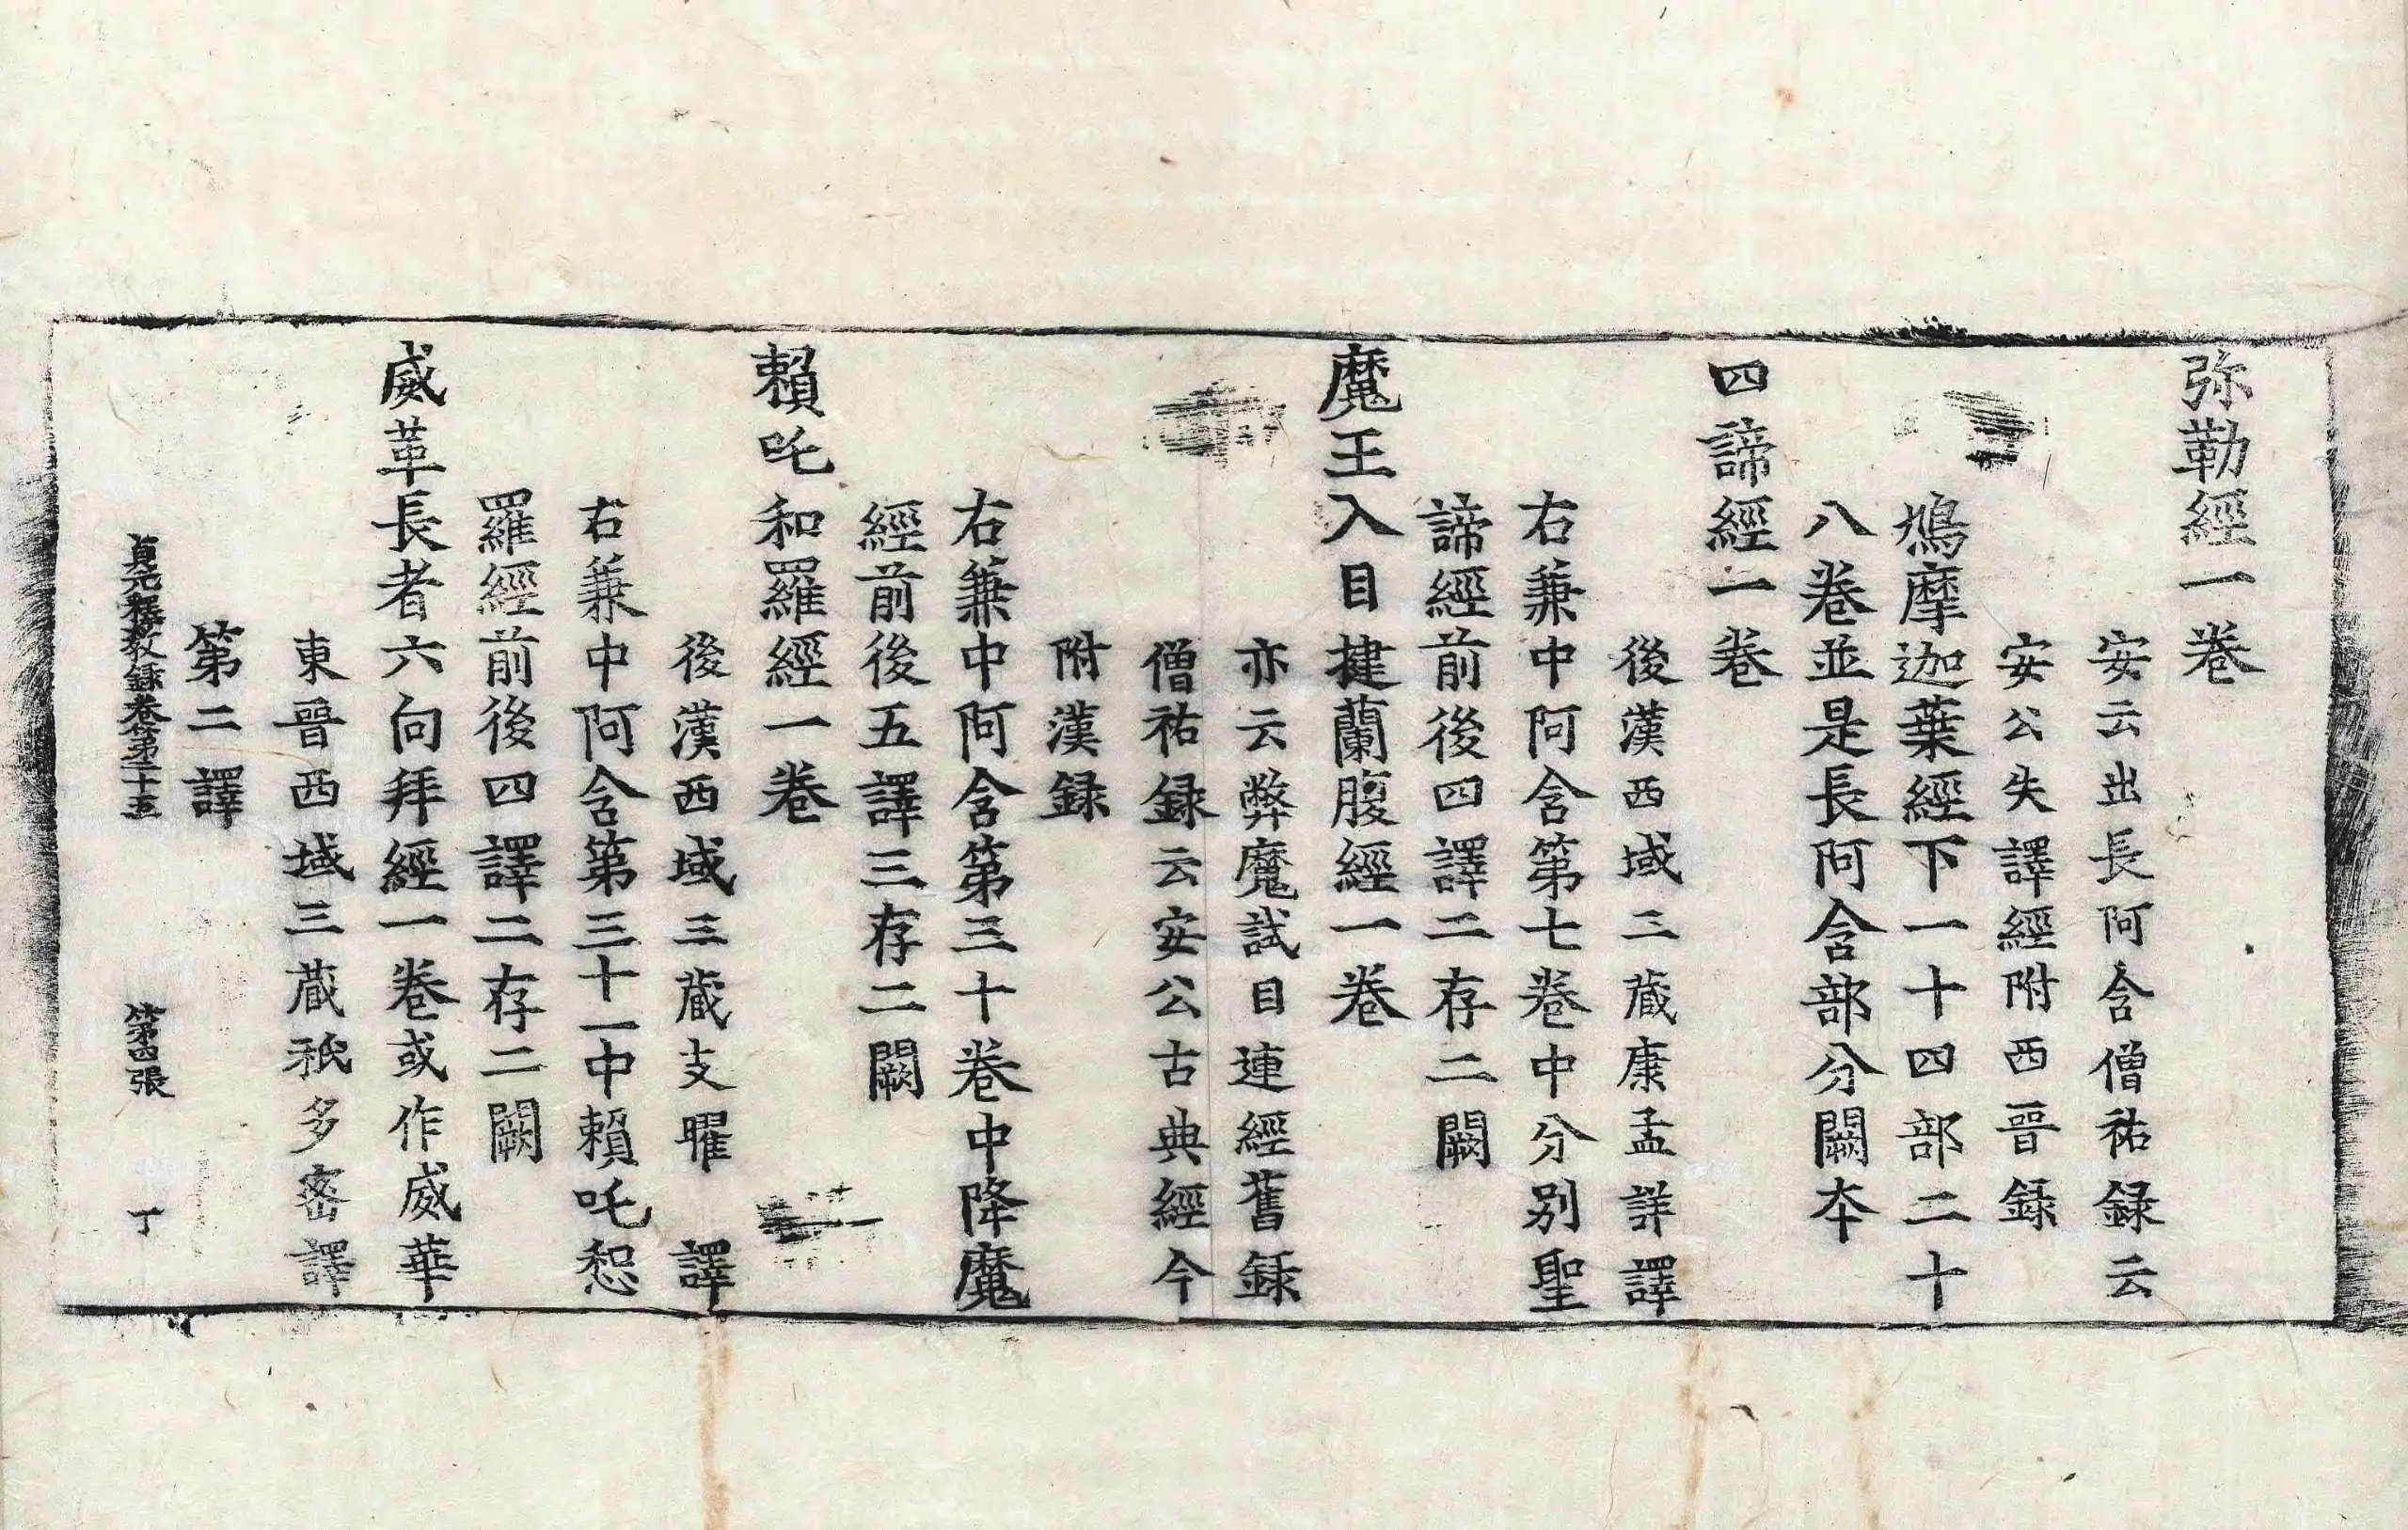 弥勒經一卷
安云出長阿含僧祐録云
安公失譯經附西晉録
鳩摩迦葉經下一十四部二十
八卷並是長阿含部分闕本
四諦經一卷
後漢西域三蔵康孟詳譯
右兼中阿含第七卷中分別聖
諦經前後四譯二存二闕
魔王入目揵蘭腹經一卷
亦云弊魔試目連經舊録
僧祐録云安公古典經今
附漢録
右兼中阿含第三十卷中降魔
經前後五譯三存二闕
賴吒和羅經一卷
後漢西域三蔵支曜 譯
右兼中阿含第三十一中賴吒惒
羅經前後四譯二存二闕
威革長者六向拜經一卷或作威華
東晉西域三蔵祇多蜜譯
第二譯
貞元釋教録卷第二十五 第四張 丁